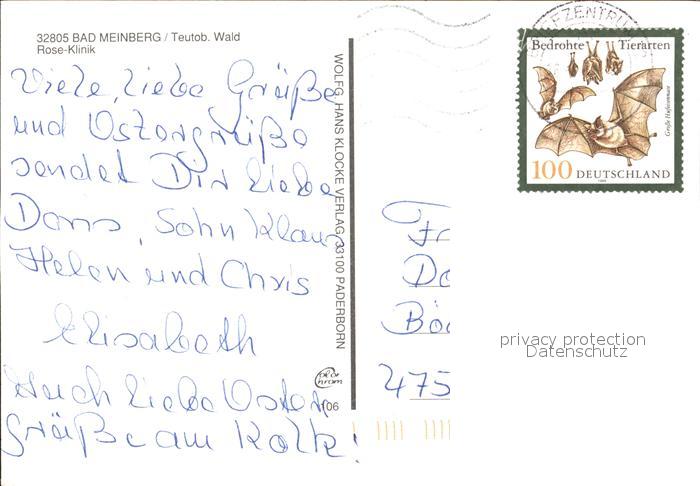 32805 BAD MEINBERG / Teutob. Wald
Rose-Klinik
Viele, liebe Grüße
und Ostergrüße
sendet Dir liebe
Doris, Sohn Klaus
Helen und Chris
Elisabeth
Auch liebe Oster
grüße am Kolk!
WOLFG. HANS KLOCKE VERLAG, 33100 PADERBORN
106
BRIEFZENTRUM
Bedrohte Tierarten
Große Hufeisennase
100 DEUTSCHLAND
Fr
Do
Bö
475
privacy protection
Datenschutz